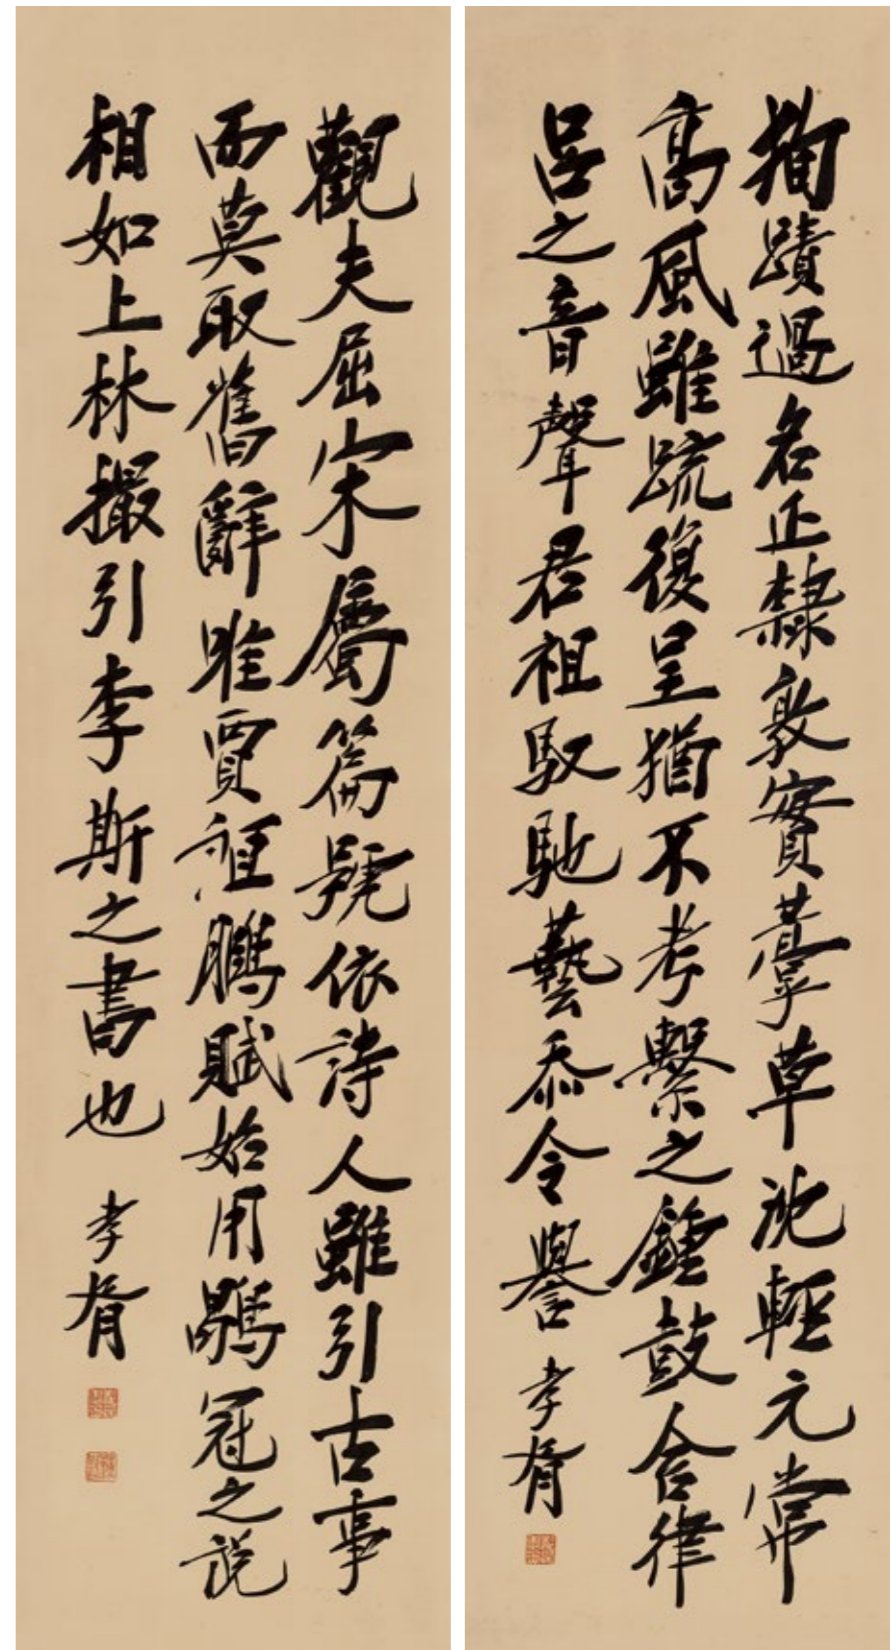 蹟過名正隸敦實藁草沈輕元常
高風雖疏復呈猶不考繫之鐘鼓合律
呂之音聲君祖馭馳藝忝令譽
孝胥
觀夫屈宋屬篇號依詩人雖引古事
而莫取舊辭唯賈誼鵩賦始用鶡冠之說
相如上林撮引李斯之書也
孝胥